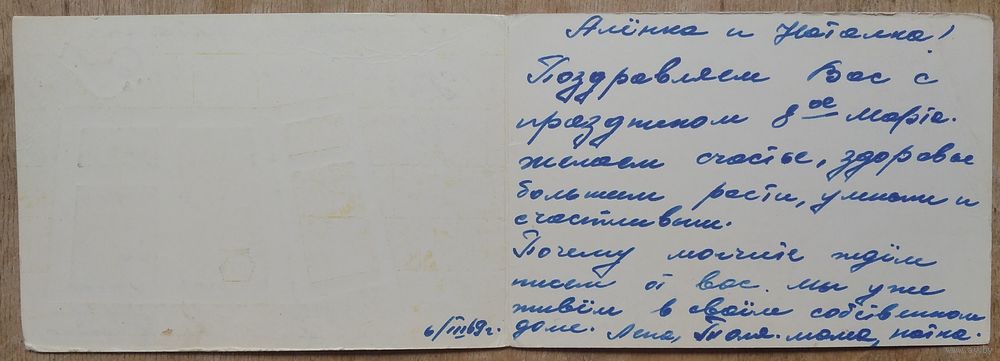 Алёнка и Наталка!
Поздравляем Вас с
праздником 8ое Марта.
желаем счастье, здоровье
большими расти, умными и
счастливыми.
Почему молчите ждём
писем от вас. мы уже
живём в своём собственном
доме. Лена, Толя. мама, папка.
6/III 69 г.